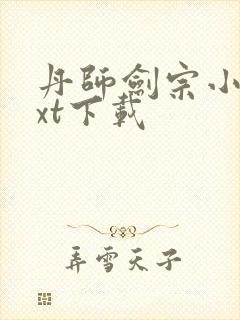 丹師劍宗小
xt下載
弄雪天子